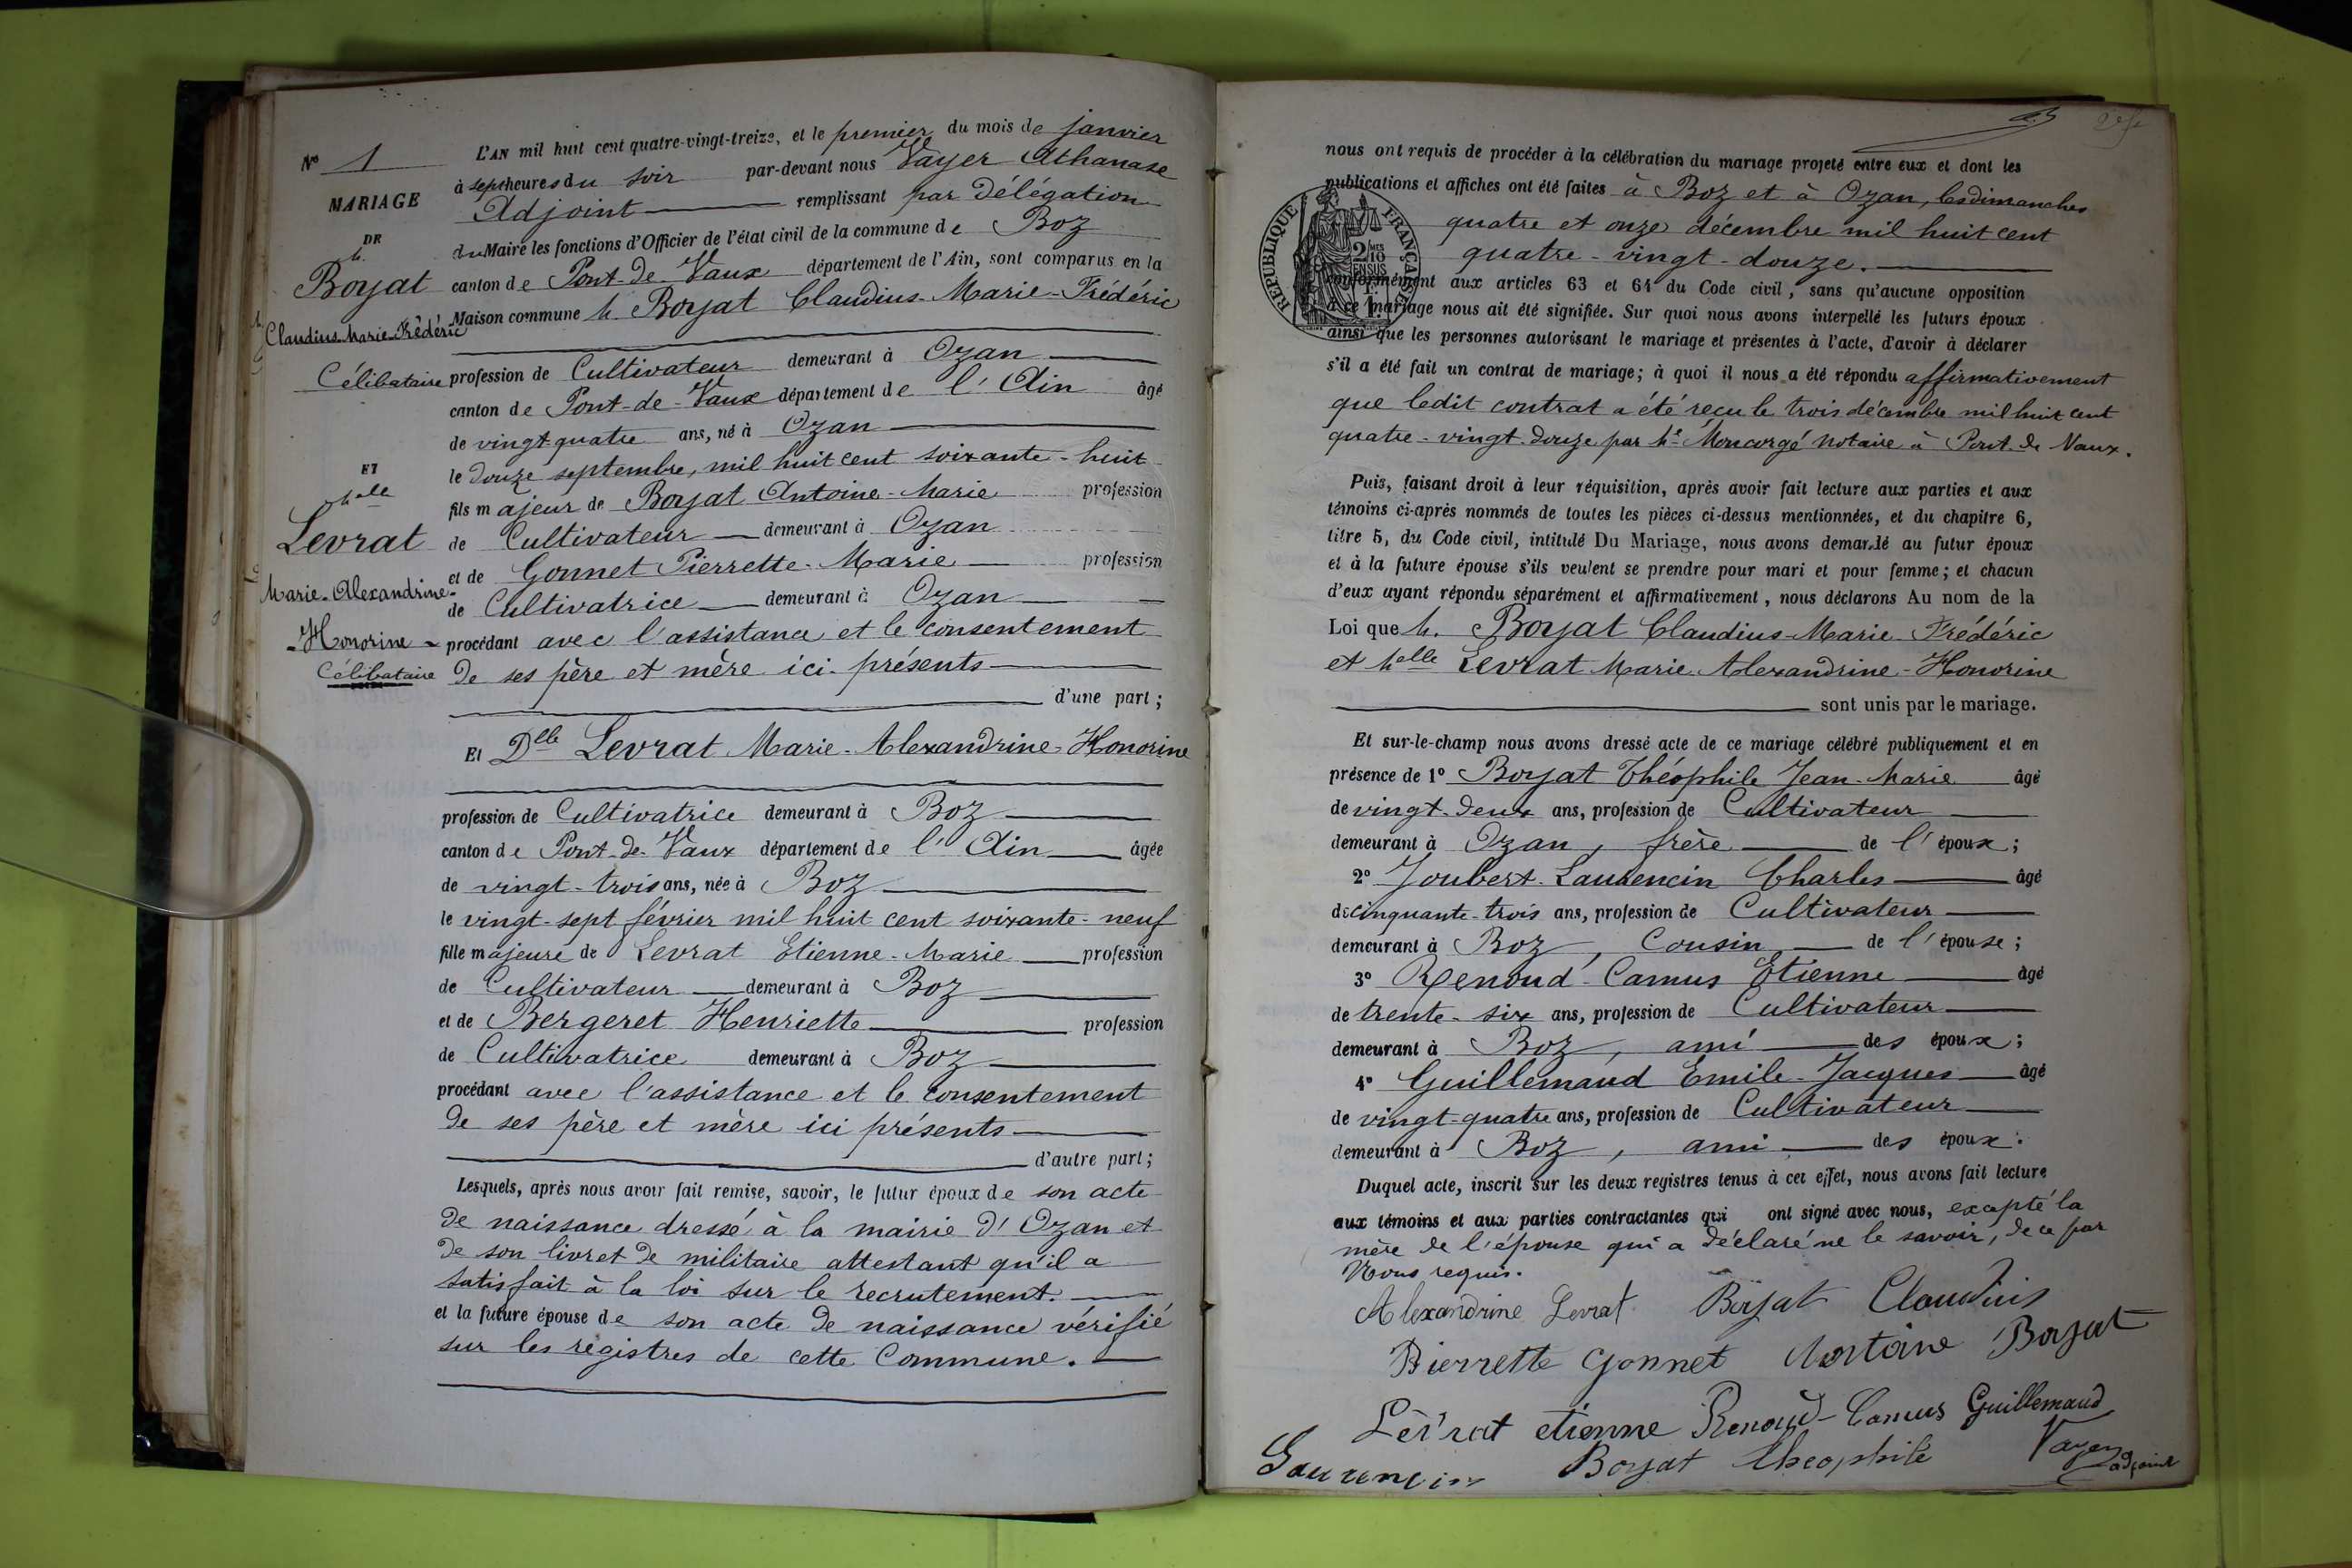 N° 1
MARIAGE
DE
M.
Boyat
Claudius-Marie-Frédéric
Célibataire
ET
Melle
Levrat
Marie-Alexandrine-
-Honorine-
Célibataire
L'AN mil huit cent quatre-vingt-treize, et le premier du mois de janvier
à sept heures du soir par-devant nous Vayer Athanase
Adjoint remplissant par Délégation
du Maire les fonctions d'Officier de l'état civil de la commune de Boz
canton de Pont-de-Vaux département de l'Ain, sont comparus en la
Maison commune M. Boyat Claudius-Marie-Frédéric
profession de Cultivateur demeurant à Ozan
canton de Pont-de-Vaux département de l'Ain âgé
de vingt-quatre ans, né à Ozan
le douze septembre, mil huit cent soixante-huit
fils majeur de Boyat Antoine-Marie profession
de Cultivateur demeurant à Ozan
et de Gonnet Pierrette-Marie profession
de Cultivatrice demeurant à Ozan
procédant avec l'assistance et le consentement
de ses père et mère ici présents
d'une part;
Et Delle Levrat Marie-Alexandrine-Honorine
profession de Cultivatrice demeurant à Boz
canton de Pont-de-Vaux département de l'Ain âgée
de vingt-trois ans, née à Boz
le vingt-sept février mil huit cent soixante-neuf
fille majeure de Levrat Etienne-Marie profession
de Cultivateur demeurant à Boz
et de Bergeret Henriette profession
de Cultivatrice demeurant à Boz
procédant avec l'assistance et le consentement
de ses père et mère ici présents
d'autre part;
Lesquels, après nous avoir fait remise, savoir, le futur époux de son acte
de naissance dressé à la mairie d'Ozan et
de son livret de militaire attestant qu'il a
satisfait à la loi sur le recrutement.
et la future épouse de son acte de naissance vérifié
sur les registres de cette Commune.
nous ont requis de procéder à la célébration du mariage projeté entre eux et dont les
publications et affiches ont été faites à Boz et à Ozan, les dimanches
quatre et onze décembre mil huit cent
quatre-vingt-douze.
RÉPUBLIQUE FRANÇAISE
2/10
EN SUS
conformément aux articles 63 et 64 du Code civil, sans qu'aucune opposition
à ce mariage nous ait été signifiée. Sur quoi nous avons interpellé les futurs époux
ainsi que les personnes autorisant le mariage et présentes à l'acte, d'avoir à déclarer
s'il a été fait un contrat de mariage; à quoi il nous a été répondu affirmativement
que ledit contrat a été reçu le trois décembre mil huit cent
quatre-vingt-douze par Me Moncorgé notaire à Pont-de-Vaux.
Puis, faisant droit à leur réquisition, après avoir fait lecture aux parties et aux
témoins ci-après nommés de toutes les pièces ci-dessus mentionnées, et du chapitre 6,
titre 5, du Code civil, intitulé Du Mariage, nous avons demandé au futur époux
et à la future épouse s'ils veulent se prendre pour mari et pour femme; et chacun
d'eux ayant répondu séparément et affirmativement, nous déclarons Au nom de la
Loi que M. Boyat Claudius-Marie-Frédéric
et Melle Levrat Marie-Alexandrine-Honorine
sont unis par le mariage.
Et sur-le-champ nous avons dressé acte de ce mariage célébré publiquement et en
présence de 1° Boyat Théophile Jean-Marie âgé
de vingt-deux ans, profession de Cultivateur
demeurant à Ozan, frère de l'époux;
2° Joubert-Laurencin Charles âgé
de cinquante-trois ans, profession de Cultivateur
demeurant à Boz, Cousin de l'épouse;
3° Renoud-Camus Etienne âgé
de trente-six ans, profession de Cultivateur
demeurant à Boz, ami des époux;
4° Guillemaud Emile-Jacques âgé
de vingt-quatre ans, profession de Cultivateur
demeurant à Boz, ami des époux.
Duquel acte, inscrit sur les deux registres tenus à cet effet, nous avons fait lecture
aux témoins et aux parties contractantes qui ont signé avec nous, excepté la
mère de l'épouse qui a déclaré ne le savoir, de ce par
Nous requis.
Alexandrine Levrat Boyat Claudius
Pierrette Gonnet Antoine Boyat
Levrat etienne Renoud-Camus Guillemaud
Laurencin Boyat théophile Vayer adjoint